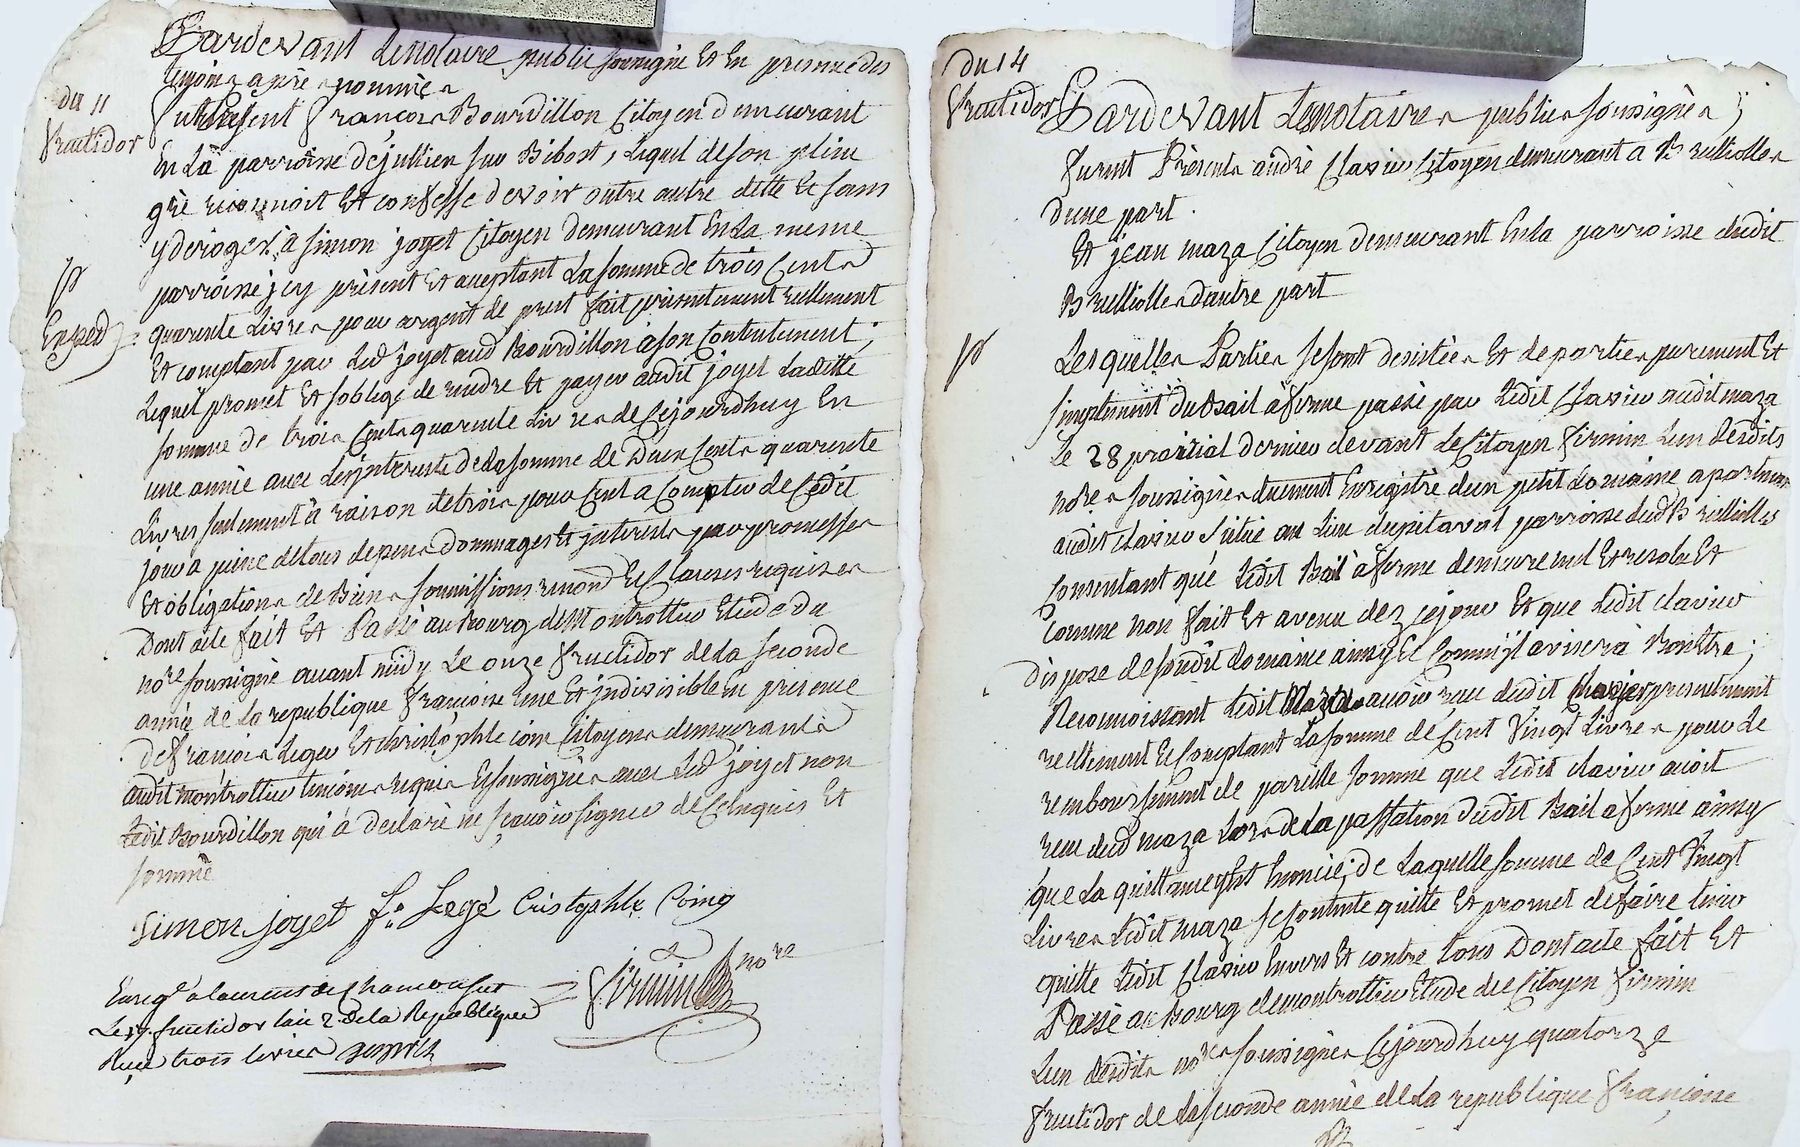 du 11
fructidor
Pardevant Lenotaire public soussigné Et En presence des
temoins aprés nommés
fut Present françois Bourdillon Citoyen demeurant
En La parroisse de jullien sur Bibost, Lequel de son plein
gré reconnoit Et confesse devoir outre autre dette Et sans
y deroger à simon joyet Citoyen demeurant En La meme
parroisse jcy présent Et acceptant La somme de trois Cents
quarente Livres pour argent de prest fait présentement réellement
Exped
Et comptant par Led joyet aud Bourdillon à son Contentement;
Lequel promet Et soblige de rendre Et payer audit joyet Laditte
somme de trois Cents quarente Livres de Cejourdhuy En
une année avec Les jnterests de La somme de Deux Cents quarente
Livres seulement à raison de trois pour Cent a Compter de Cedit
jour a peine de tous depens dommages Et jnterests par promesses
Et obligations de Biens soumissions renond Et Clauses requises
Dont acte fait Et Passé au Bourg de Montrottier Etude du
nore soussigné avant midy Le onze fructidor de La seconde
année de La republique françoise une Et jndivisible En presence
de françois Leger Et christophle coing Citoyens demeurants
audit montrottier temoins requis Et soussignés avec Led joyet non
Ledit Bourdillon qui à declaré ne sçavoir signer de Ce Enquis Et
sommé
simon joyet fs Legé Cristophle Coing
firmin nore
Enregé a Laurent de Chamousset
Le 17 fructidor Lan 2 de la Republique
Reçu trois livres
du 14
fructidor
Pardevant Les notaires publics soussignés;
furent Présents andré Clavier Citoyen demeurant a Brulliolles
dune part.
Et jean maza Citoyen demeurant En La parroisse dudit
Brulliolles dautre part
Lesquelles Parties se sont desistées Et departies purement Et
simplement du Bail à ferme passé par Ledit Clavier audit maza
Le 28 prairial dernier devant Le Citoyen firmin Lun desdits
nores soussignés duement Enregistré dun petit domaine apartenant
audit clavier situé au Lieu du pitaval parroisse dud Brulliolles
Consentant que Ledit Bail à ferme demeure nul Et resolu Et
comme non fait Et avenu dez cejour Et que Ledit clavier
dispose de sondit domaine ainsy Et Comm'jl avisera Bon Etre;
Reconnoissant Ledit Maza avoir reçu dudit Clavier presentement
reellement Et Comptant La somme de Cent Vingt Livres pour Le
remboursement de pareille somme que Ledit clavier avoit
reçu dud maza Lors de La passation dudit Bail a ferme ainsy
que La quittance y Est Enoncée; de Laquelle somme de Cent Vingt
Livres Ledit maza se contente quitte Et promet de faire tenir
quitte Ledit Clavier Envers Et contre tous Dont acte fait Et
Passé au Bourg de montrottier Etude du Citoyen firmin
Lun desdits nores soussignés Cejourdhuy quatorze
fructidor de La seconde année de La republique françoise